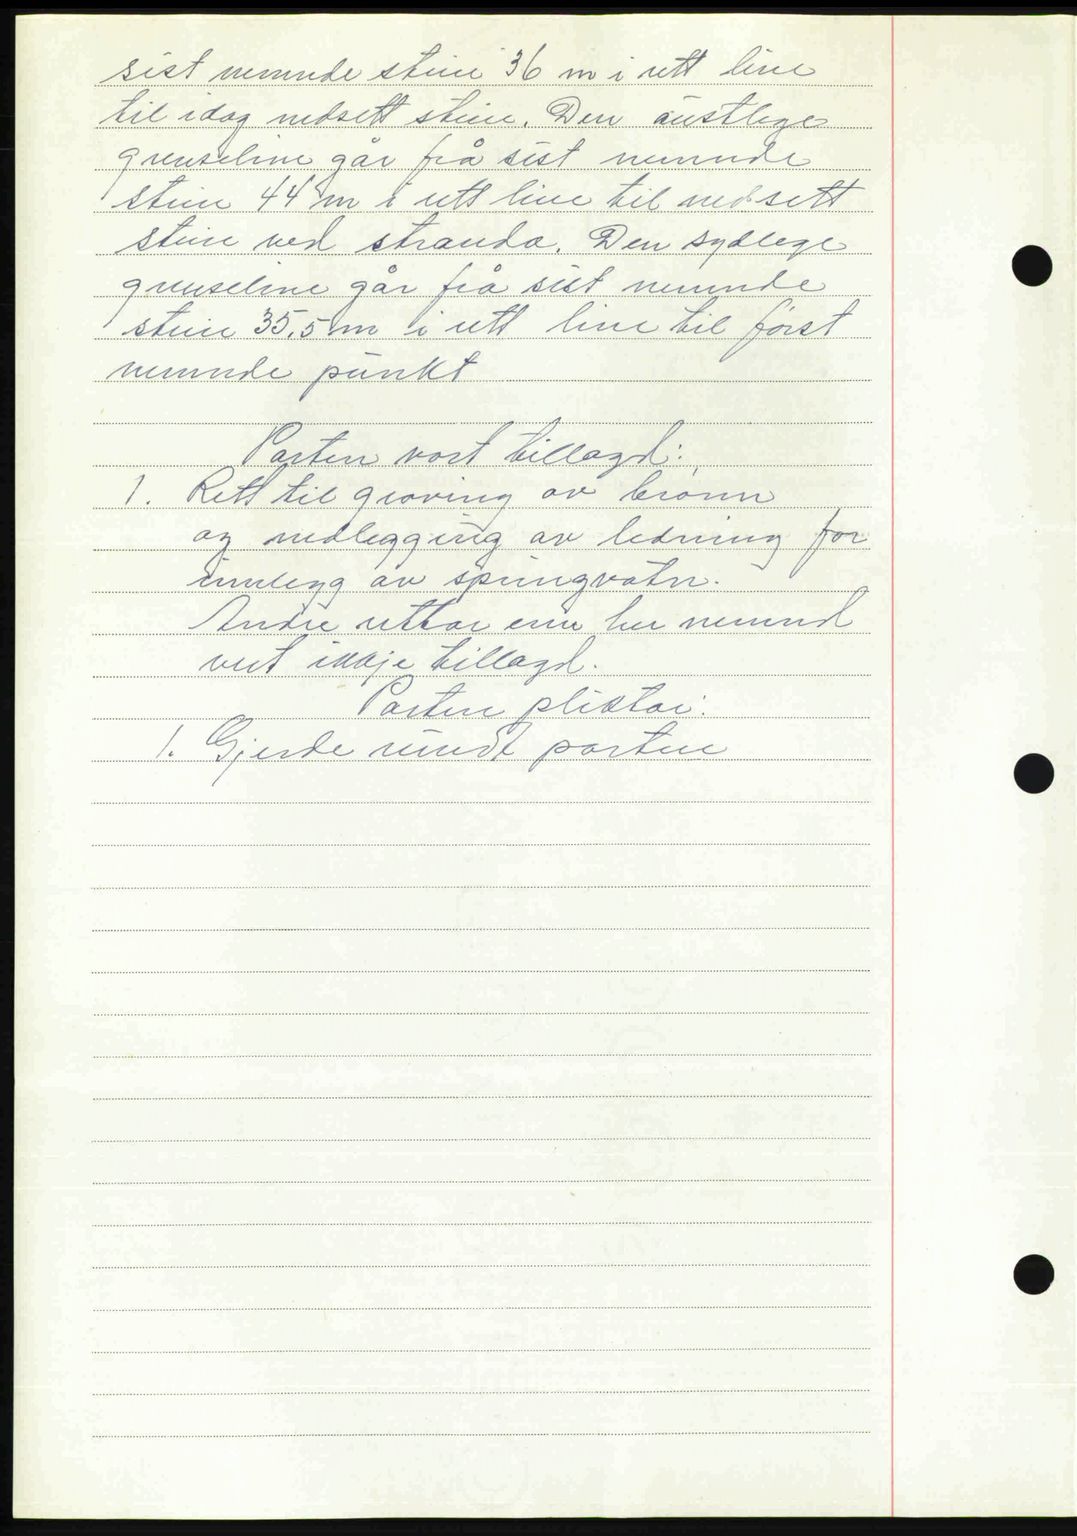 sist nemnde stein 36 m i rett line
til idag nedsett stein. Den austlege
grenseline går frå sist nemnde
stein 44 m i rett line til nedsett
stein ved stranda. Den sydlege
grenseline går frå sist nemnde
stein 35,5 m i rett line til först
nemnde punkt
Parten vart tillagd:
1. Rett til graving av brönn
og nedlegging av ledning for
innlegg av springvatn.
Andre rettar enn her nemnd
vert ikkje tillagd.
Parten pliktar:
1. Gjerde rundt parten